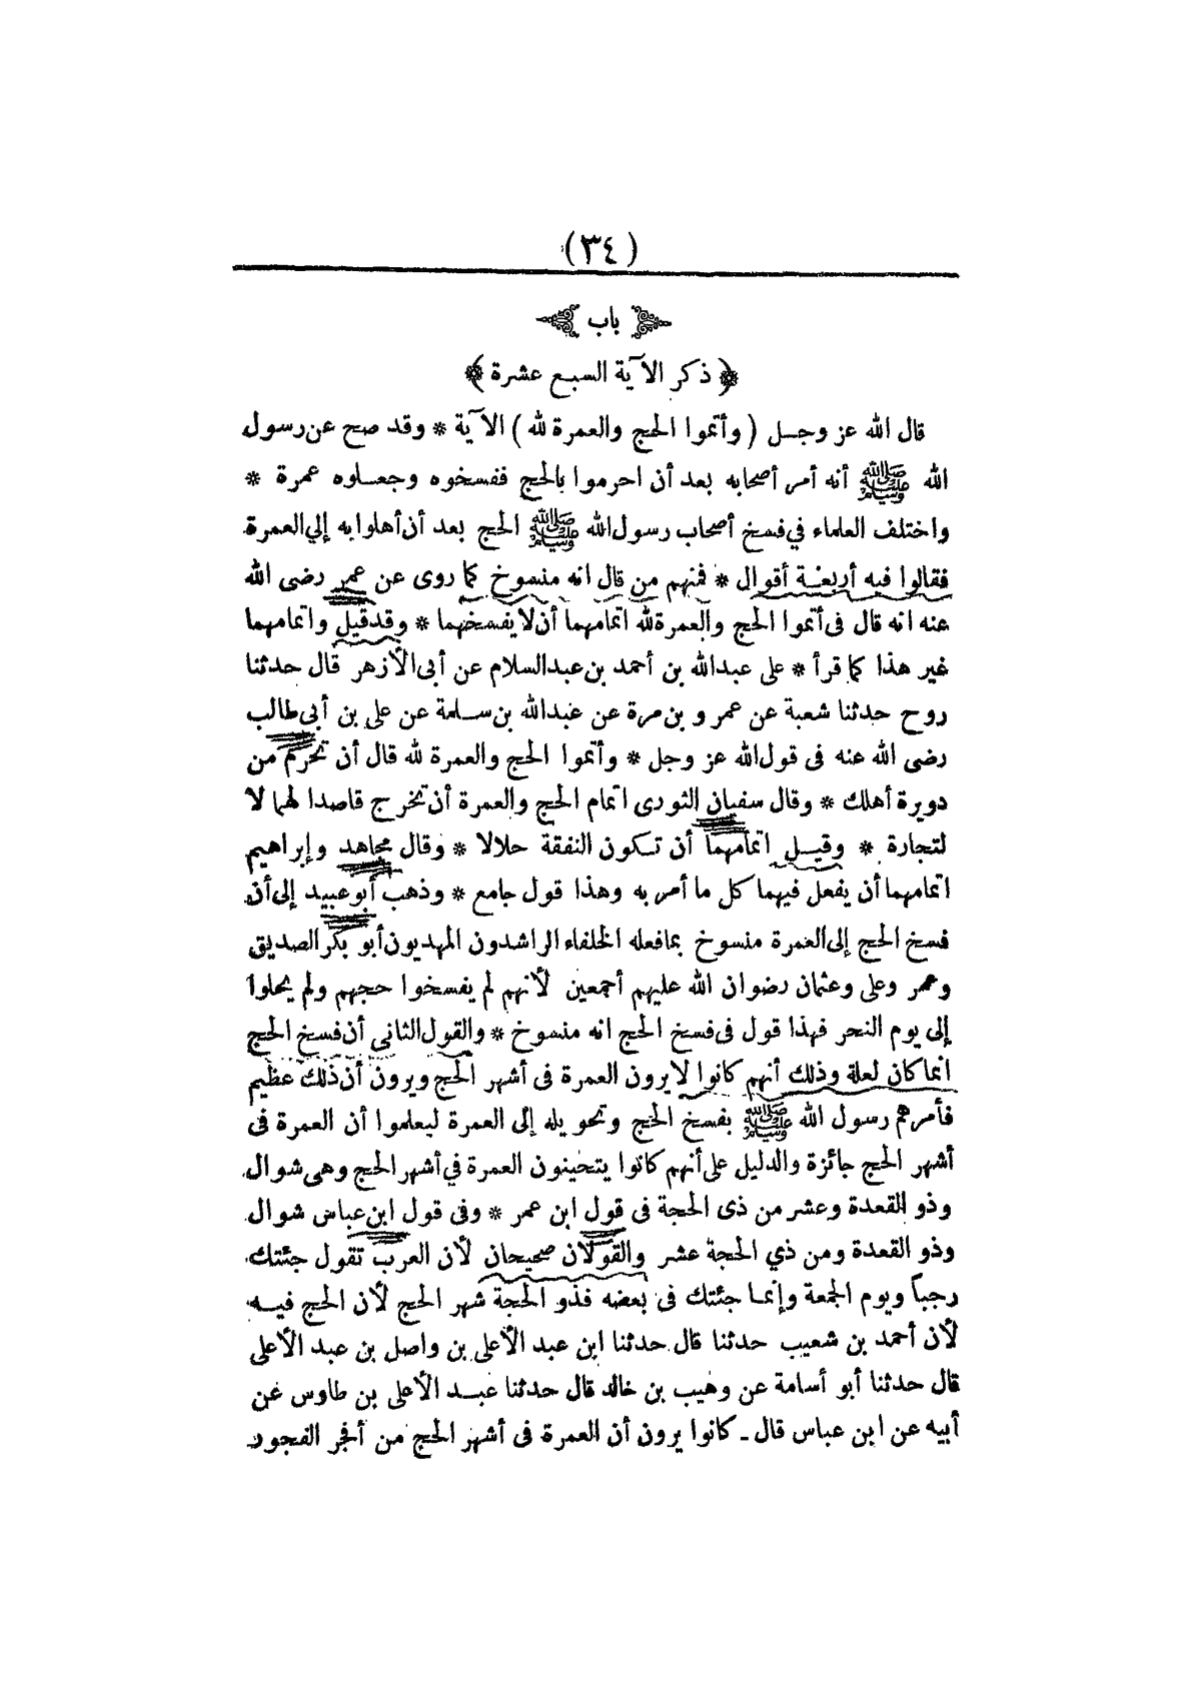 (٣٤)
باب
﴿ ذكر الآية السبع عشرة ﴾
قال الله عز وجل ( وأتموا الحج والعمرة لله ) الآية * وقد صح عن رسول
الله ﷺ أنه أمر أصحابه بعد أن احرموا بالحج ففسخوه وجعلوه عمرة *
واختلف العلماء في فسخ أصحاب رسول الله ﷺ الحج بعد أن أهلوا به إلي العمرة
فقالوا فيه أربعة أقوال * فمنهم من قال انه منسوخ كما روى عن عمر رضى الله
عنه انه قال فى أتموا الحج والعمرة لله اتمامهما أن لا يفسخهما * وقد قيل واتمامهما
غير هذا كما قرأ * على عبد الله بن أحمد بن عبد السلام عن أبى الأزهر قال حدثنا
روح حدثنا شعبة عن عمر و بن مرة عن عبد الله بن سلمة عن على بن أبى طالب
رضى الله عنه فى قول الله عز وجل * وأتموا الحج والعمرة لله قال أن تحرم من
دويرة أهلك * وقال سفيان الثورى اتمام الحج والعمرة أن تخرج قاصدا لهما لا
لتجارة * وقيل اتمامهما أن تكون النفقة حلالا * وقال مجاهد وإبراهيم
اتمامهما أن يفعل فيهما كل ما أمر به وهذا قول جامع * وذهب أبو عبيد إلى أن
فسخ الحج إلى العمرة منسوخ بما فعله الخلفاء الراشدون المهديون أبو بكر الصديق
وعمر وعلى وعثمان رضوان الله عليهم أجمعين لأنهم لم يفسخوا حجهم ولم يحلوا
إلى يوم النحر فهذا قول فى فسخ الحج انه منسوخ * والقول الثانى أن فسخ الحج
انما كان لعلة وذلك أنهم كانوا لا يرون العمرة فى أشهر الحج ويرون أن ذلك عظيم
فأمرهم رسول الله ﷺ بفسخ الحج وتحويله إلى العمرة ليعلموا أن العمرة فى
أشهر الحج جائزة والدليل على أنهم كانوا يتحينون العمرة في أشهر الحج وهى شوال
وذو القعدة وعشر من ذى الحجة فى قول ابن عمر * وفى قول ابن عباس شوال
وذو القعدة ومن ذي الحجة عشر والقولان صحيحان لأن العرب تقول جئتك
رجباً ويوم الجمعة وإنما جئتك فى بعضه فذو الحجة شهر الحج لأن الحج فيه
لأن أحمد بن شعيب حدثنا قال حدثنا ابن عبد الأعلى بن واصل بن عبد الأعلى
قال حدثنا أبو أسامة عن وهيب بن خالد قال حدثنا عبد الأعلى بن طاوس عن
أبيه عن ابن عباس قال ـ كانوا يرون أن العمرة فى أشهر الحج من أفجر الفجور